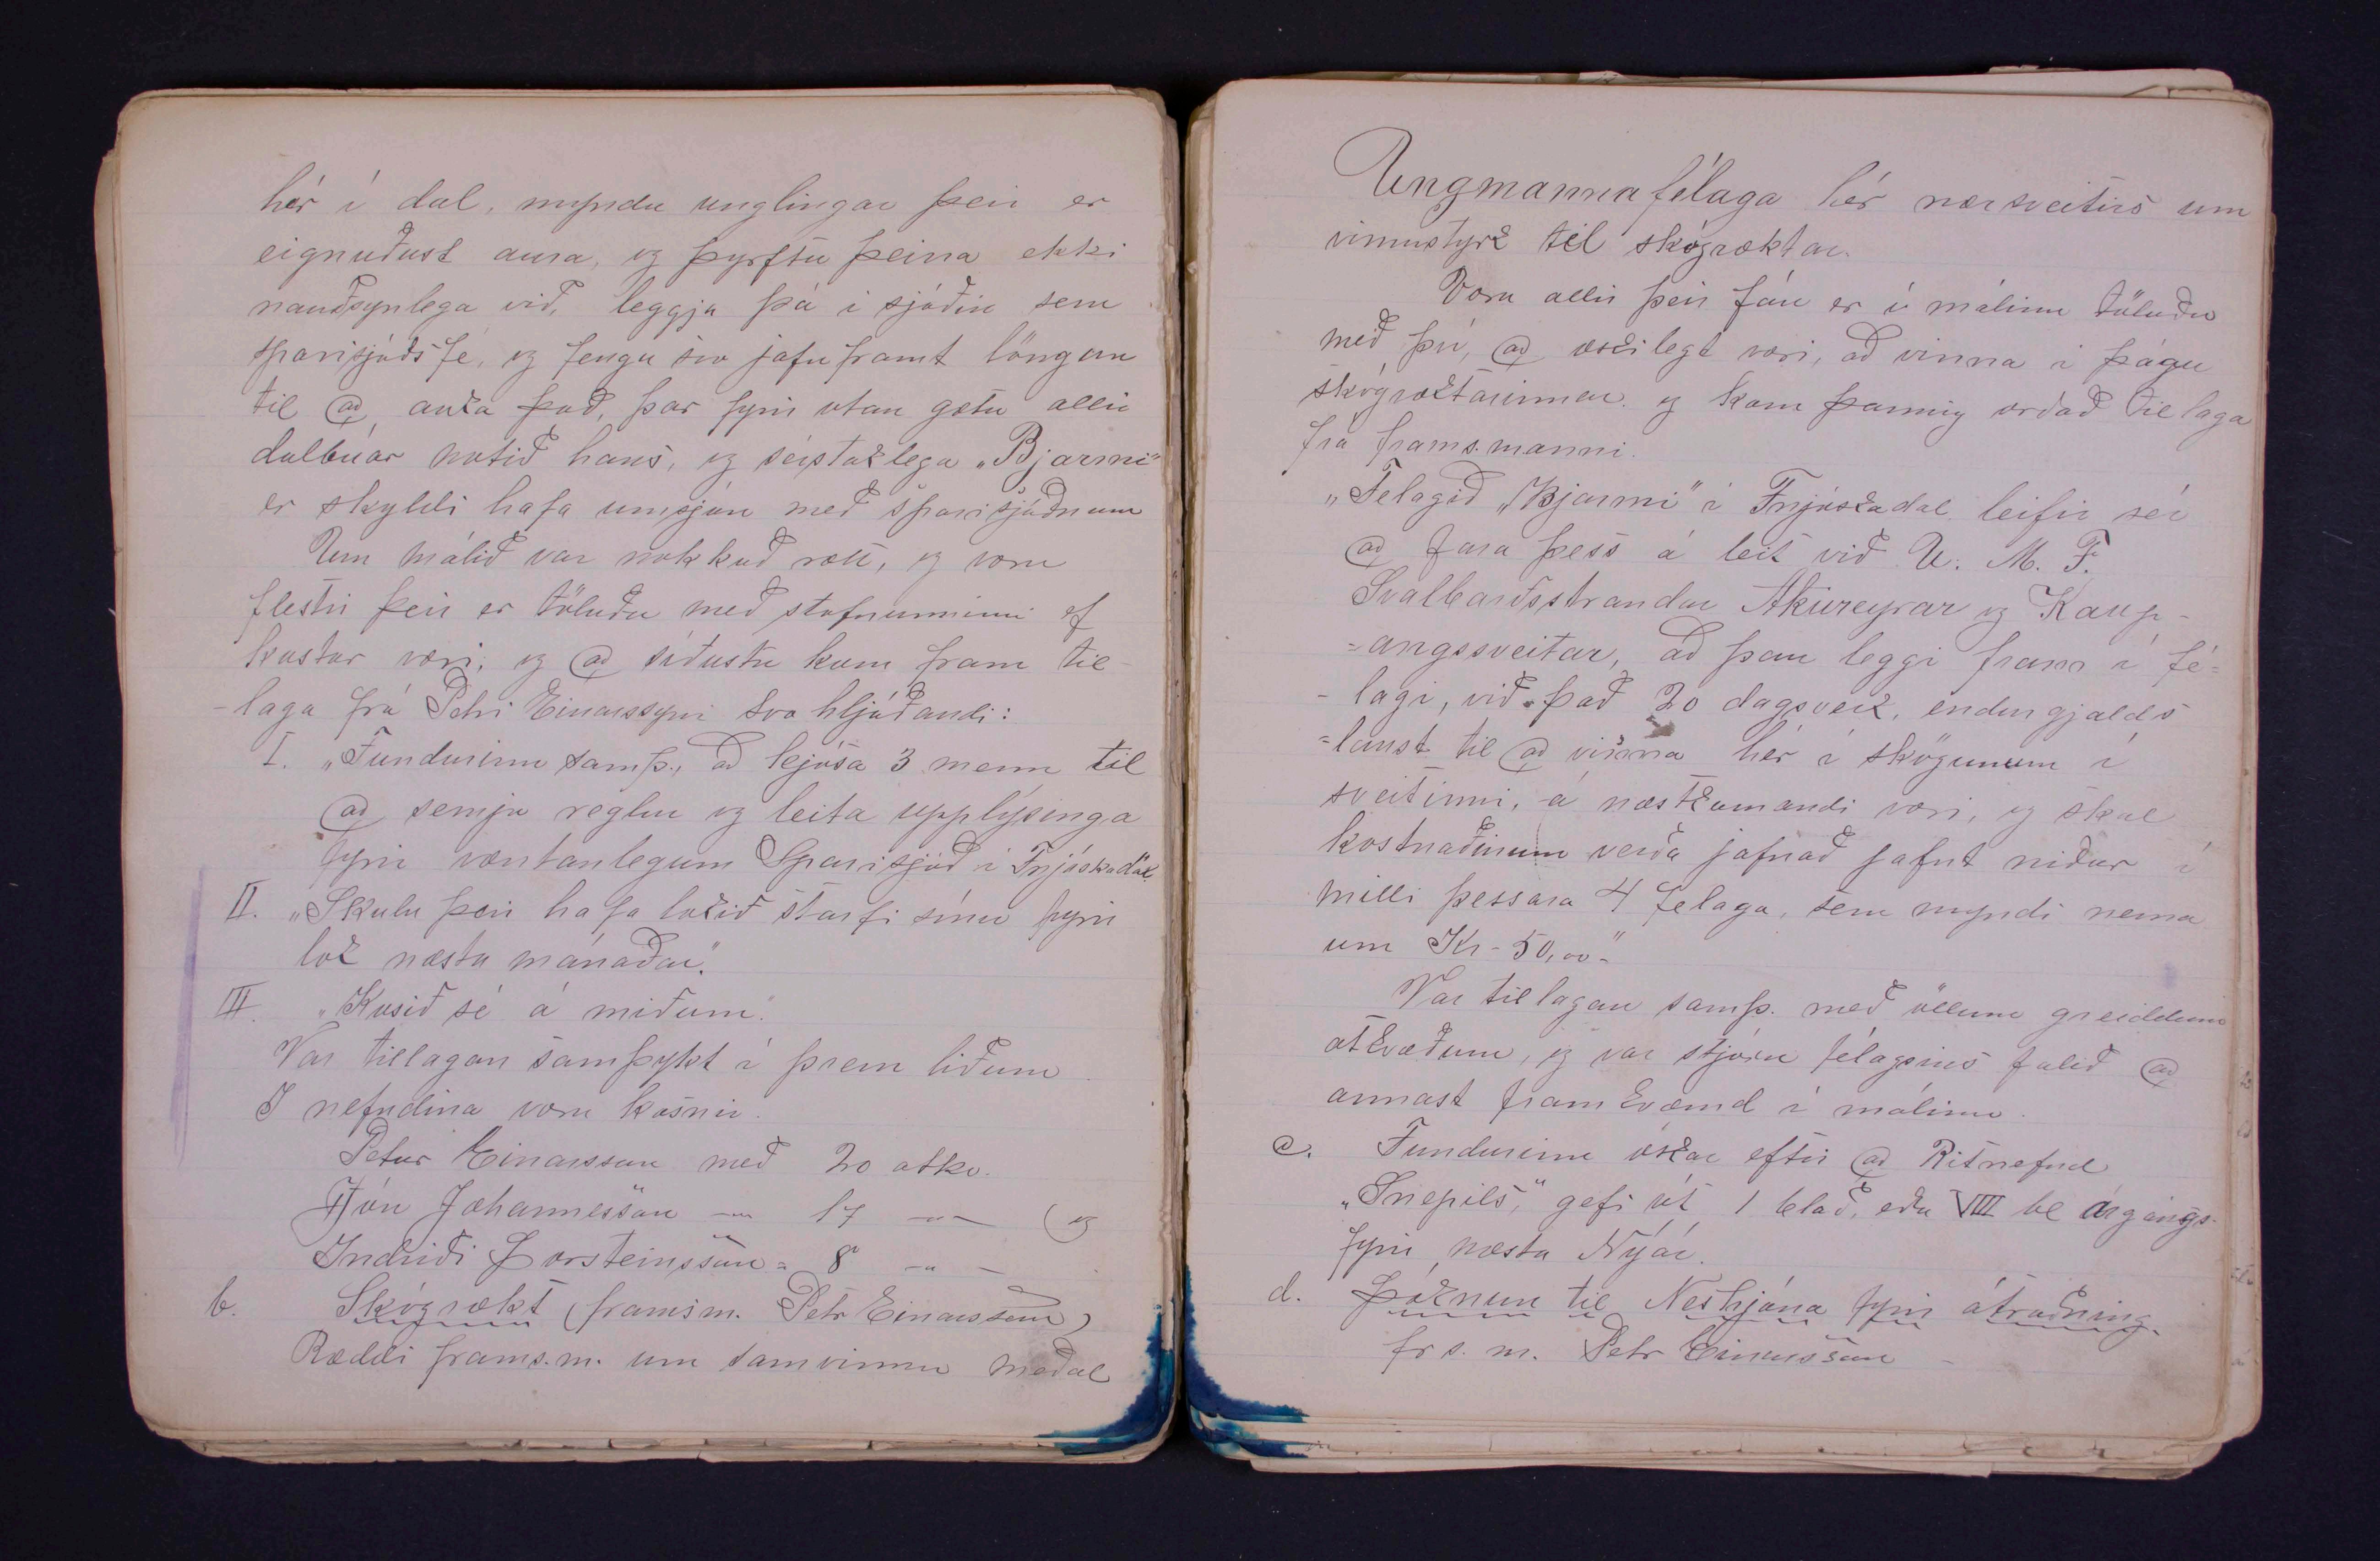 hér í dal, myndu unglingar þeir er
eignuðust aura, og þyrftu þeirra ekki
nauðsynlega við, leggja þá í sjóðin sem
sparisjóðsfé, og fengu svo jafnframt löngun
til að auka það, þar fyrir utan gætu allir
dalbúar notið hans, og sérstaklega „Bjarmi"
er skyldi hafa umsjón með sparisjóðnum
Um málið var nokkuð rætt, og voru
flestir þeir er töluðu með stofnuninni ef
kostur væri, og að síðustu kom fram til-
-laga frá Petri Einarssyni svo hljóðandi:
I. „Fundurinn samþ., að kjósa 3 menn til
að semja reglur og leita upplýsinga
fyrir væntanlegum Sparisjóð í Fnjóskadal.
II. „Skulu þeir hafa lokið starfi sínu fyrir
lok næsta mánaðar."
III. „Kosið sé á miðum."
Var tillagan samþykt í þrem liðum
I nefndina voru kosnir.
Petur Einarsson með 20 atkv.
Jón Johannesson –„– 17 –„– (og
Indriði Þorsteinsson = 8 –„–
b. Skógrækt (framsm. Petr Einarsson)
Ræddi frams.m. um samvinnu meðal
Ungmannafélaga hér nærsveitis um
vinnustyrk til skógræktar.
Voru allir þeir fáu er í málinu töluðu
með því, að æskilegt væri, að vinna í þágu
skógræktarinnar. og kom þannig orðað tillaga
frá frams.manni.
„Felagið „Bjarmi" í Fnjóskadal leifir sér
að fara þess á leit við U. M. F.
Svalbarðsstrandar Akureyrar og Kaup-
=angssveitar, að þau leggi fram í fé=
-lagi, við það 20 dagsverk, endurgjalds
=laust til að vinna hér í skógunum í
sveitinni, á næstkomandi vori, og skal
kostnaðinum verða jafnað jafnt niður í
milli þessara 4 felaga, sem myndi nema
um Kr - 50,00 -"
Var tillagan samþ. með öllum greiddum
atkvæðum, og var stjórn félagsins falið að
annast framkvæmd í málinu.
c. Fundurinn óskar eftir að Ritnefnd
„Snepils," gefi út 1 blað, eða VIII bl árgangs.
fyrir næsta Nýár.
d. Þóknun til Neshjóna fyrir átroðning.
frs. m. Petr Einarsson –